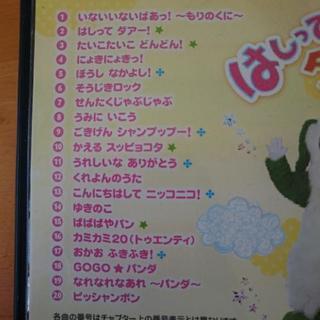 はしって
1 いないいないばあっ! ～もりのくに～
2 はしって ダアー! ★
3 たいこたいこ どんどん! ★
4 にょきにょきっ!
5 ぼうし なかよし!
6 そうじきロック
7 せんたくじゃぶじゃぶ
8 うみに いこう
9 ごきげん シャンプップー!
10 かえる スッピョコタ ★
11 うれしいな ありがとう
12 くれよんのうた
13 こんにちはして ニッコニコ!
14 ゆきのこ
15 ぱぱぱやパン ★
16 カミカミ20(トゥエンティ)
17 おかお ふきふき!
18 GOGO★パンダ
19 なれなれなあれ ～パンダ～
20 ピッシャンポン
各曲の番号はチャプター上の番号表示とは異なります